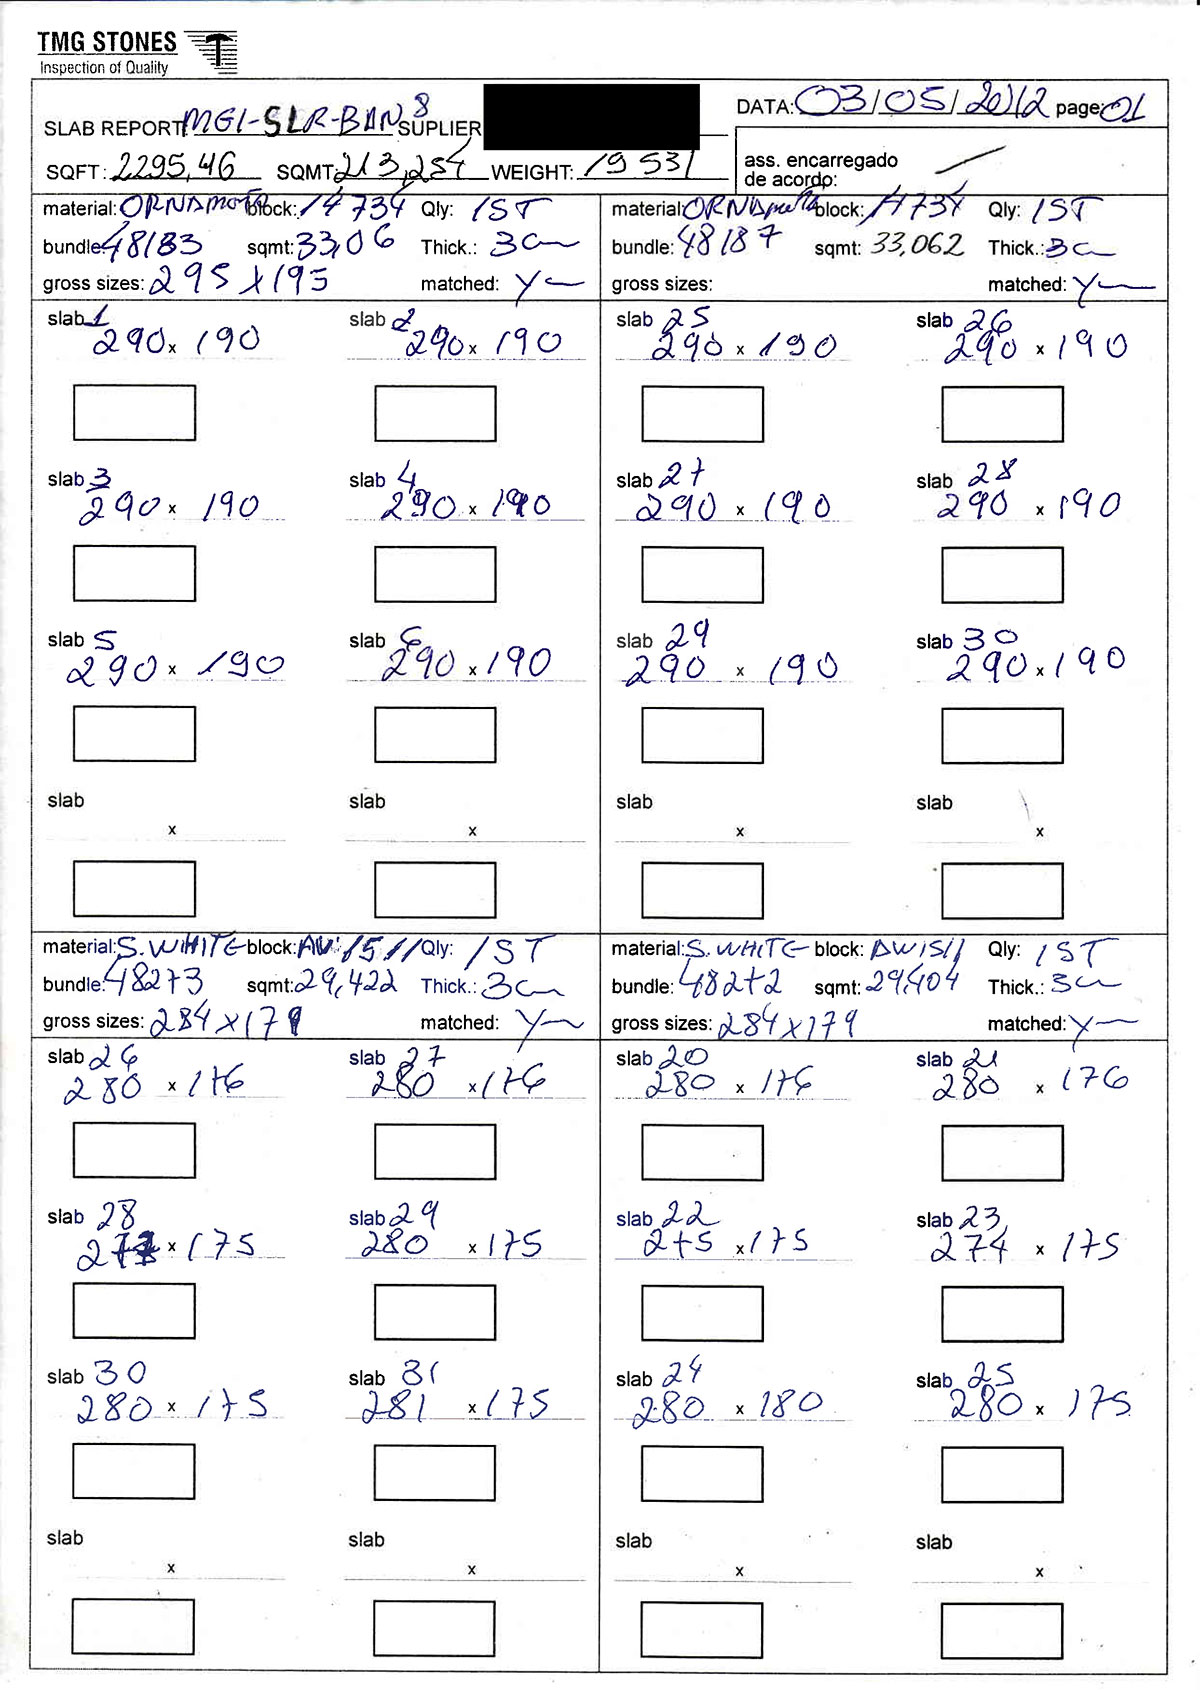 TMG STONES
Inspection of Quality
SLAB REPORT MGI-SLR-BAN8 SUPLIER DATA: 03/05/2012 page: 01
SQFT: 2295,46 SQMT: 213,254 WEIGHT: 19531
ass. encarregado
de acordo:
material: block: 14734 Qly: 1ST
bundle: 48183 sqmt: 33,06 Thick.: 3cm
gross sizes: 295 x 195 matched: y
material: block: 14734 Qly: 1ST
bundle: 48187 sqmt: 33,062 Thick.: 3cm
gross sizes: matched: y
slab 1 slab 2 slab 25 slab 26
290 x 190 290 x 190 290 x 190 290 x 190
slab 3 slab 4 slab 27 slab 28
290 x 190 290 x 190 290 x 190 290 x 190
slab 5 slab 6 slab 29 slab 30
290 x 190 290 x 190 290 x 190 290 x 190
slab slab slab slab
x x x x
material: S. WHITE block: Qly: 1ST
bundle: 48273 sqmt: 29,422 Thick.: 3cm
gross sizes: 284 x 179 matched: y
material: S. WHITE block: Qly: 1ST
bundle: 48272 sqmt: 29,404 Thick.: 3cm
gross sizes: 284 x 179 matched: y
slab 26 slab 27 slab 20 slab 21
280 x 176 280 x 176 280 x 176 280 x 176
slab 28 slab 29 slab 22 slab 23
x 175 280 x 175 275 x 175 274 x 175
slab 30 slab 31 slab 24 slab 25
280 x 175 281 x 175 280 x 180 280 x 175
slab slab slab slab
x x x x